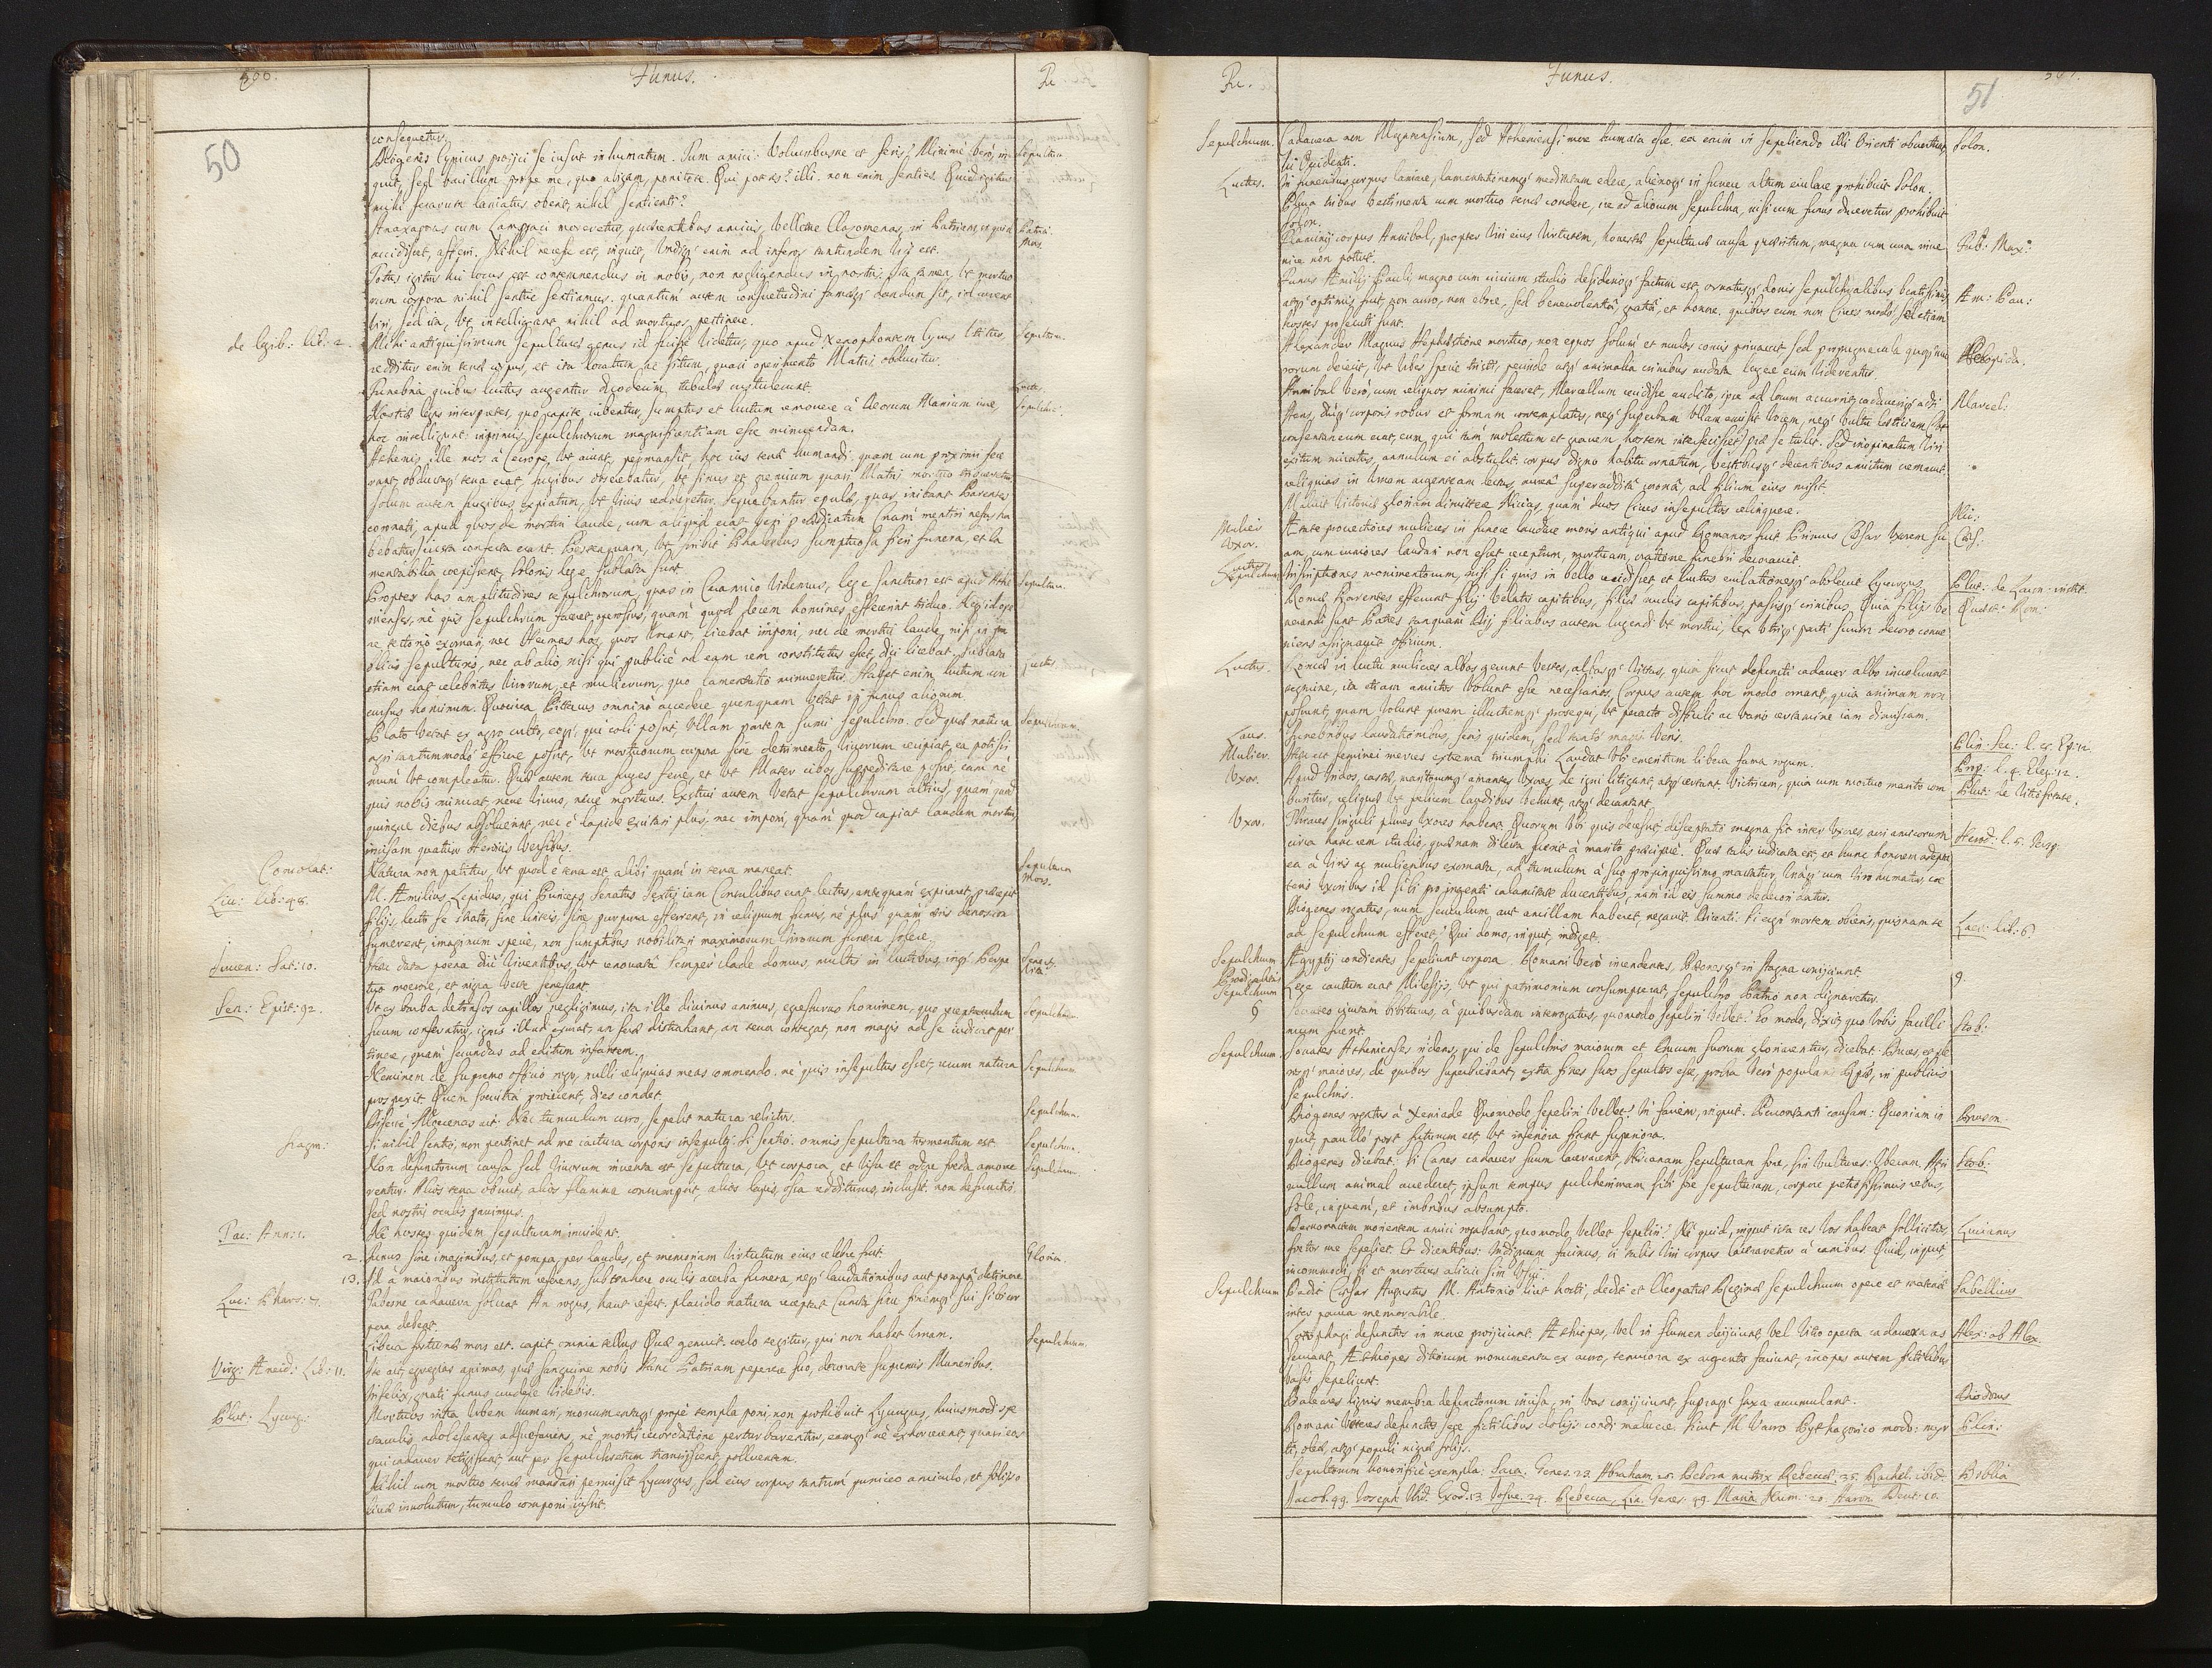 Funus.
Re
50
consequetur.
Diogenes Cynicus proijci se iussit inhumatum. Tum amici: Volucribusne et feris? Minime vero, in
quit, sed bacillum prope me, quo abigam, ponitote. Qui poteris? illi. non enim senties. Quid igitur
mihi ferarum laniatus oberit, nihil sentienti?
Sepultura
Anaxagoras cum Lampsaci moreretur, quaerentibus amicis, velletne Clazomenas, in Patriam, si quid
accidisset, afferri. Nihil necesse est, inquit, undiq. enim ad inferos tantundem viae est.
Patria.
Mors.
Totus igitur hic locus est contemnendus in nobis, non negligendus in nostris: ita tamen, ut mortuo
rum corpora nihil sentire sentiamus. quantum autem consuetudini famaeq. dandum sit, id curent
vivi, sed ita, ut intelligant nihil ad mortuos pertinere.
de legib: lib: 2.
Mihi antiquissimum sepulturae genus id fuisse videtur, quo apud Xenophontem Cyrus utitur,
redditur enim terrae corpus, et ita locatum ac situm, quasi operimento Matris obducitur.
Sepultura.
Funebria quibus luctus augentur duodecim tabulae sustulerunt
Luctus.
Nostrae legis interpretes, quo capite iubentur, sumptus et luctum removere à Deorum Manium iure,
hoc intelligunt: inprimis sepulchrorum magnificentiam esse minuendam.
Sepulchr:
Athenis ille mos à Cecrope, ut aiunt, permansit, hoc ius terrae humandi: quam cum proximi fece
rant obductaq. terra erat, frugibus obserebatur, ut sinus et gremium quasi Matris mortuo tribueretur
solum autem frugibus expiatum, ut vivis redderetur. Sequebantur epulae, quas inibant Parentes
coronati, apud quos de mortui laude, cum aliquid erat veri praedicatum (nam mentiri nefas ha
bebatur) iusta confecta erant. Posteaquam, ut scribit Phalereus sumptuosa fieri funera, et la
mentabilia coepissent, Solonis lege sublata sunt
Propter has amplitudines sepulchrorum, quas in Ceramico videmus, lege sanctum est apud Athe
nienses, nè quis sepulchrum faceret operosius, quam quod decem homines effecerint triduo. Neq. id ope
re tectorio exornari, nec Hermes hos, quos vocant, licebat imponi, nec de mortui laude, nisi in pu
blicis sepulturis, nec ab alio, nisi qui publicè ad eam rem constitutus esset, dici licebat. Sublata
etiam erat celebritas virorum, et mulierum, quo lamentatio minueretur. Habet enim luctum con
cursus hominum. Quocirca Pittacus omnino accedere quenquam vetat in funus aliorum
Sepultura.
Luctus.
Plato vetat ex agro culto, eove, qui coli possit, ullam partem sumi sepulchro. Sed quae natura
agri tantummodo efficere possit, ut mortuorum corpora sine detrimento vivorum recipiat, ea potissi
mum ut compleatur. Quae autem terra fruges ferre, et ut Mater cibos suppeditare possit, eam nè
quis nobis minuat, neve vivus, neve mortuus. Extrui autem vetat sepulchrum altius, quam quod
quinque diebus absolverint, nec è lapide excitari plus, nec imponi, quam quod capiat laudem mortui
incisam quatuor Herois versibus.
Sepulchrum.
Consolat:
Natura non patitur, ut quod è terra est alibi quam in terra maneat.
Sepultura
Mors.
Liu: lib: 48.
M. Aemilius Lepidus, qui Princeps Senatus sextis iam Censulibus erat lectus, antequam expiraret, praecepit
filijs, lecto se strato, sine linteis, sine purpura efferrent, in reliquum funus, nè plus quam aeris denos in
sumerent, imaginum specie, non sumptibus nobilitari maximorum virorum funera solere.
Iuuen: Sat: 10.
Haec data poena diu viventibus, ut renovata semper clade domus, multis in luctibus, inq. Perpe
tuo moerore, et nigra veste senescant.
Senect.
Vita
Sen: Epist: 92.
Ut ex barba detonsos capillos negligimus, ita ille divinus animus, egressurus hominem, quo receptaculum
suum conferatur, ignis illud exurat, an ferae distrahant, an terra contegat, non magis ad se iudicat per
tinere, quam secundas ad editum infantem.
Sepulchrum
Neminem de supremo officio rogo, nulli reliquias meas commendo. nè quis insepultus esset, rerum natura
prospexit. Quem saevitia proiecerit, dies condet.
Sepulchrum
Disertè Moecenas ait. Nec tumulum curo, sepelit natura relictos.
Sepulchrum.
fragm:
Si nihil sentis, non pertinet ad me iactura corporis insepulti. Si sentio: omnis sepultura tormentum est.
Sepulchrum.
Non defunctorum causa sed vivorum inventa est sepultura, ut corpora, et visu et odore foeda, amove
rentur: Alios terra obruit, alios flamma consumpsit, alios lapis, ossa redditurus, inclusit. non defunctis,
sed nostris oculis parcimus.
Sepulchrum
Tac: Ann: 1.
Nè hostes quidem sepulturam invident.
2.
Funus sine imaginibus, et pompa, per laudes, et memoriam virtutum eius celebre fuit.
Gloria.
13.
Id à maioribus institutum referens, subtrahere oculis acerba funera, neq. laudationibus aut pompâ detinere
Luc: Phars: 7.
Tabesne cadavera solvat An rogus, haut refert. placido natura receptat Cuncta sinu finemq. sui sibi cor
pora debent.
Libera fortunae mors est. capit omnia tellus Quae genuit. coelo tegitur, qui non habet urnam.
Sepulchrum.
Virg: Aeneid: Lib: 11.
Ite ait, egregias animas, quae sanguine nobis Hanc Patriam peperere suo, decorate supremis Muneribus.
Infelix, gnati funus crudele videbis.
Plut: Lycurg:
Mortuos intra Urbem humari, monumentaq. prope templa poni, non prohibuit Lycurgus, huiusmodi spe
ctaculis adolescentes assuefaciens, nè mortis recordatione perturbarentur, eamq. nè exhorrerent, quasi eos
qui cadaver tetigissent, aut per sepulchretum transissent, polluentem.
Nihil cum mortuo terrae mandari permisit Lycurgus, sed eius corpus tantum puniceo amiculo, et folijs o
livae involutum, tumulo componi iussit.
Re.
Funus.
51
Sepulchrum.
Cadavera non Megarensium, sed Atheniensi more humata esse. ea enim in sepeliendo illi Orienti obvertunt,
hi Occidenti.
Solon.
Luctus.
In funeribus corpus laniare, lamentationemq. meditatam edere, alienosq. in funere alium eiulare prohibuit Solon.
Plura tribus vestimenta cum mortuo terrae condere, ire ad aliorum sepulchra, nisi cum funus duceretur, prohibuit
Solon.
Flaminij corpus Annibal, propter viri eius virtutem, honestae sepulturae causa quaesitum, magna cum cura inve
nire non potuit.
Fab: Max:
Funus Aemilij Pauli, magno cum civium studio desiderioq. factum est, ornatusq. donis sepulchralibus beatissimis
atq. optimis fuit, non auro, non ebore, sed benevolentiâ, gratiâ, et honore. quibus eum non Cives modo, sed etiam
hostes prosecuti sunt.
Aem: Pau:
Alexander Magnus Hephaestione mortuo, non equos solum et mulos comis privavit, sed propugnacula quoq. mu
rorum deiecit, ut urbes specie tristi, perinde atq. animalia crinibus nudata lugere eum viderentur.
Pelopida.
Annibal vero, cum reliquos minimi faceret, Marcellum cecidisse audito, ipse ad locum accurrit, cadaveriq. adsi
stens, diuq. corporis robur et formam contemplatus, neq. superbam ullam emisit vocem, neq. vultu laetitiam
consentaneum erat, eum, qui tam molestum et gravem hostem interfecisset prae se tulit. Sed inopinatum viri
exitum miratus, annulum ei abstulit. corpus digno habitu ornatum, vestibusq. decentibus amictum cremavit.
reliquias in urnam argenteam lectas, aureâ superadditâ coronâ, ad filium eius misit.
Marcel:
Maluit victoriae gloriam dimittere Nicias, quam duos Cives insepultos relinquere.
Nic:
Mulier
Uxor.
Aetate provectiores mulieres in funere laudare moris antiqui apud Romanos fuit Primus Caesar uxorem su
am, cum iuniores laudari non esset receptum, mortuam, oratione funebri decoravit.
Caes:
Luctus
Sepulchrum
Inscriptiones monimentorum, nisi si quis in bello cecidisset et luctus eiulationesq. abolevit Lycurgus.
Plut: de Lacon: instit.
Romae Parentes efferunt filij velatis capitibus, filiae nudis capitibus, passisq. crinibus. Quia filijs ho
norandi sunt Patres tanquam Dij filiabus autem lugendi ut mortui, lex utriq. parti suum decoro conve
niens assignavit officium.
Quaest: Rom:
Luctus.
Romae in luctu mulieres albas gerunt vestes, albasq. vittas, quia sicut defuncti cadaver albo involvunt
tegmine, ita etiam amictos volunt esse necessarios, Corpus autem hoc modo ornant, quia animam non
possunt, quam volunt puram illustremq. prosequi, ut peracto difficili ac vario certamine iam dimissam.
Laus.
Funebribus laudationibus, seris quidem, sed tanto magis veris.
Plin: Sec: l.
Mulier.
Laudat ubi emeritum libera fama rogum.
Prop: l. 4. Eleg: 12.
Uxor.
Apud Indos, castae, maritorumq. amantes uxores, de igni litigant, atq. certant. Victricem, quia cum mortuo marito com
buritur, reliquae ut felicem laudibus vehunt, atq. decantant.
Plut:
Uxor.
Thraces singuli plures uxores habent. Quorum ubi quis decessit, disceptatio magna fit inter uxores acri amicorum
circa hanc rem studio, quaenam dilecta fuerit à marito praecipuè. Quae talis iudicata est, et hunc honorem adepta
ea à viris ac mulieribus exornata, ad tumulum à suo propinquissimo mactatur, unàq. cum viro humatur, cae
teris uxoribus id sibi pro ingenti calamitate ducentibus, nam id eis summo dedecori datur.
Herod: l. 5. Terps:
Diogenes rogatus, num servulum, aut ancillam haberet, negavit. Dicenti: Si ergo mortem obieris, quisnam te
ad sepulchrum efferet? Qui domo, inquit, indiget.
Laer: lib: 6.
Sepulchrum
Aegyptij condientes sepeliunt corpora. Romani vero incendentes, Paeonesq. in stagna conijciunt.
Prodigalitas
Sepulchrum
Lege cautum erat Milesijs, ut qui patrimonium consumpserat, sepulchro Patrio non dignaretur.
Socrates cicutam bibiturus, à quibusdam interrogatus, quomodo sepeliri vellet: Eo modo, dixit, quo vobis facilli
mum fuerit.
Stob:
Sepulchrum.
Socrates Athenienses ridens, qui de sepulchris maiorum et Ducum suorum gloriarentur, dicebat: Duces, et ple
rosq. maiores, de quibus superbierant, extra fines suos sepultos esse, prostra vero popularium, in publicis
sepulchris.
Diogenes rogatus à Xeniade Quomodo sepeliri vellet? In faciem, inquit. Percontanti causam: Quoniam in
quit, paullo post futurum est ut inferiora fiant superiora.
Bruson
Diogenes dicebat: Si Canes cadaver suum lacerarent, Hircanam sepulturam fore, sin vultures: Ibecam. At si
nullum animal accederet, ipsum tempus pulcherrimam sibi fore sepulturam, corpore pretiosissimis rebus,
Sole, inquam, et imbribus absumpto.
Stob:
Demonactem morientem amici rogabant, quomodo vellet sepeliri? Nè quid, inquit ista res vos habeat sollicitos,
foetor me sepeliet. Et dicentibus: Indignum facinus, si talis viri corpus laceraretur à canibus. Quid, inquit,
incommodi, si et mortuus alicui sim usui.
Lucianus
Sepulchrum
Caesar Augustus M. Antonio licet hosti, dedit et Cleopatrae Reginae sepulchrum opere et materia
inter pauca memorabile.
Sabellicus
phagi defunctos in mare proijciunt. Aethiopes, vel in flumen deijciunt, vel vitro operta cadavera as
servant. Aethiopes ditiorum monumenta ex auro, tenuiora ex argento faciunt, inopes autem fictilibus
vasis sepeliunt.
Alex: ab Alex.
Baleares lignis membra defunctorum incisa, in vas conijciunt, supraq. saxa accumulant.
Diodorus
Romani veteres defunctos sese fictilibus dolijs condi maluere. Sicut M. Varro Pythagorico modo: myr
ti, oleae, atq. populi nigrae folijs.
Plin:
Sepultorum honorificè exempla: Sara. Genes. 23. Abraham. 25. Debora nutrix Rebeccae. 35. Rachel. ibid:
Iacob. 49. Ioseph. ibid. Exod. 13. Iosue. 24. Rebecca, Lia. Genes. 49. Maria Num. 20. Aaron. Deut. 10.
Biblia